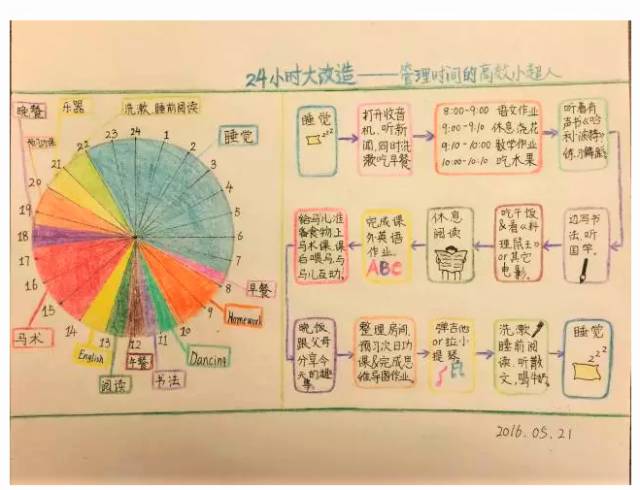 24小时大改造——管理时间的高效小超人
晚餐
乐器
洗漱,睡前阅读
睡觉
24
1
2
3
4
5
6
7
8
9
10
11
12
13
14
15
16
17
18
19
20
21
22
23
早餐
Homework
Dancing
书法
午餐
阅读
English
马术
睡觉
zzz
打开收音
机,听新
闻,同时洗
漱吃早餐
8:00-9:00 语文作业
9:00-9:10 休息,浇花
9:10-10:00 数学作业
10:00-10:10 吃水果
听着有
声书《哈
利·波特》
练习
边写书
法,听
国学.
吃午饭
&看《料
理鼠王》
or其它
电影.
休息
阅读
完成课
外英语
作业.
ABC
给马儿准
备食物,上
马术课,课
后喂马,与
马儿互动.
晚饭
跟父母
分享今
天的趣
事.
整理房间,
预习次日功
课&完成思
维导图作业.
弹吉他
or拉小
提琴
洗漱
睡前阅
读,听散
文,喝牛奶.
睡觉
zzz
2016.05.21